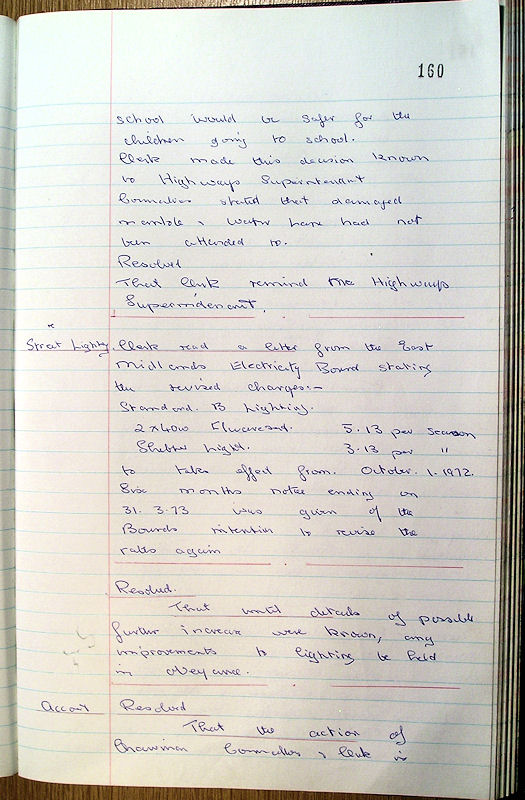 160
school would be safer for the
children going to school.
Clerk made this decision known
to Highways Superintenant
Councillors stated that damaged
manhole, Water Lane had not
been attended to.
Resolved
That Clerk remind the Highways
Superindenant.
Street Lighting Clerk read a letter from the East
Midlands Electricity Board stating
the revised charges:-
Standard. B Lighting.
2 x 40w Flworesed. 5.13 per season
Shelter Light. 3.13 per "
to take effect from. October. 1. 1972.
Six months notice ending on
31. 3.73 was given of the
Boards intention to revise the
rates again
Resolved.
That until details of possible
further increase were known, any
improvements to lighting be held
in obeyance.
Account Resolved
That the action of
Chairman Councillors, Clerk in